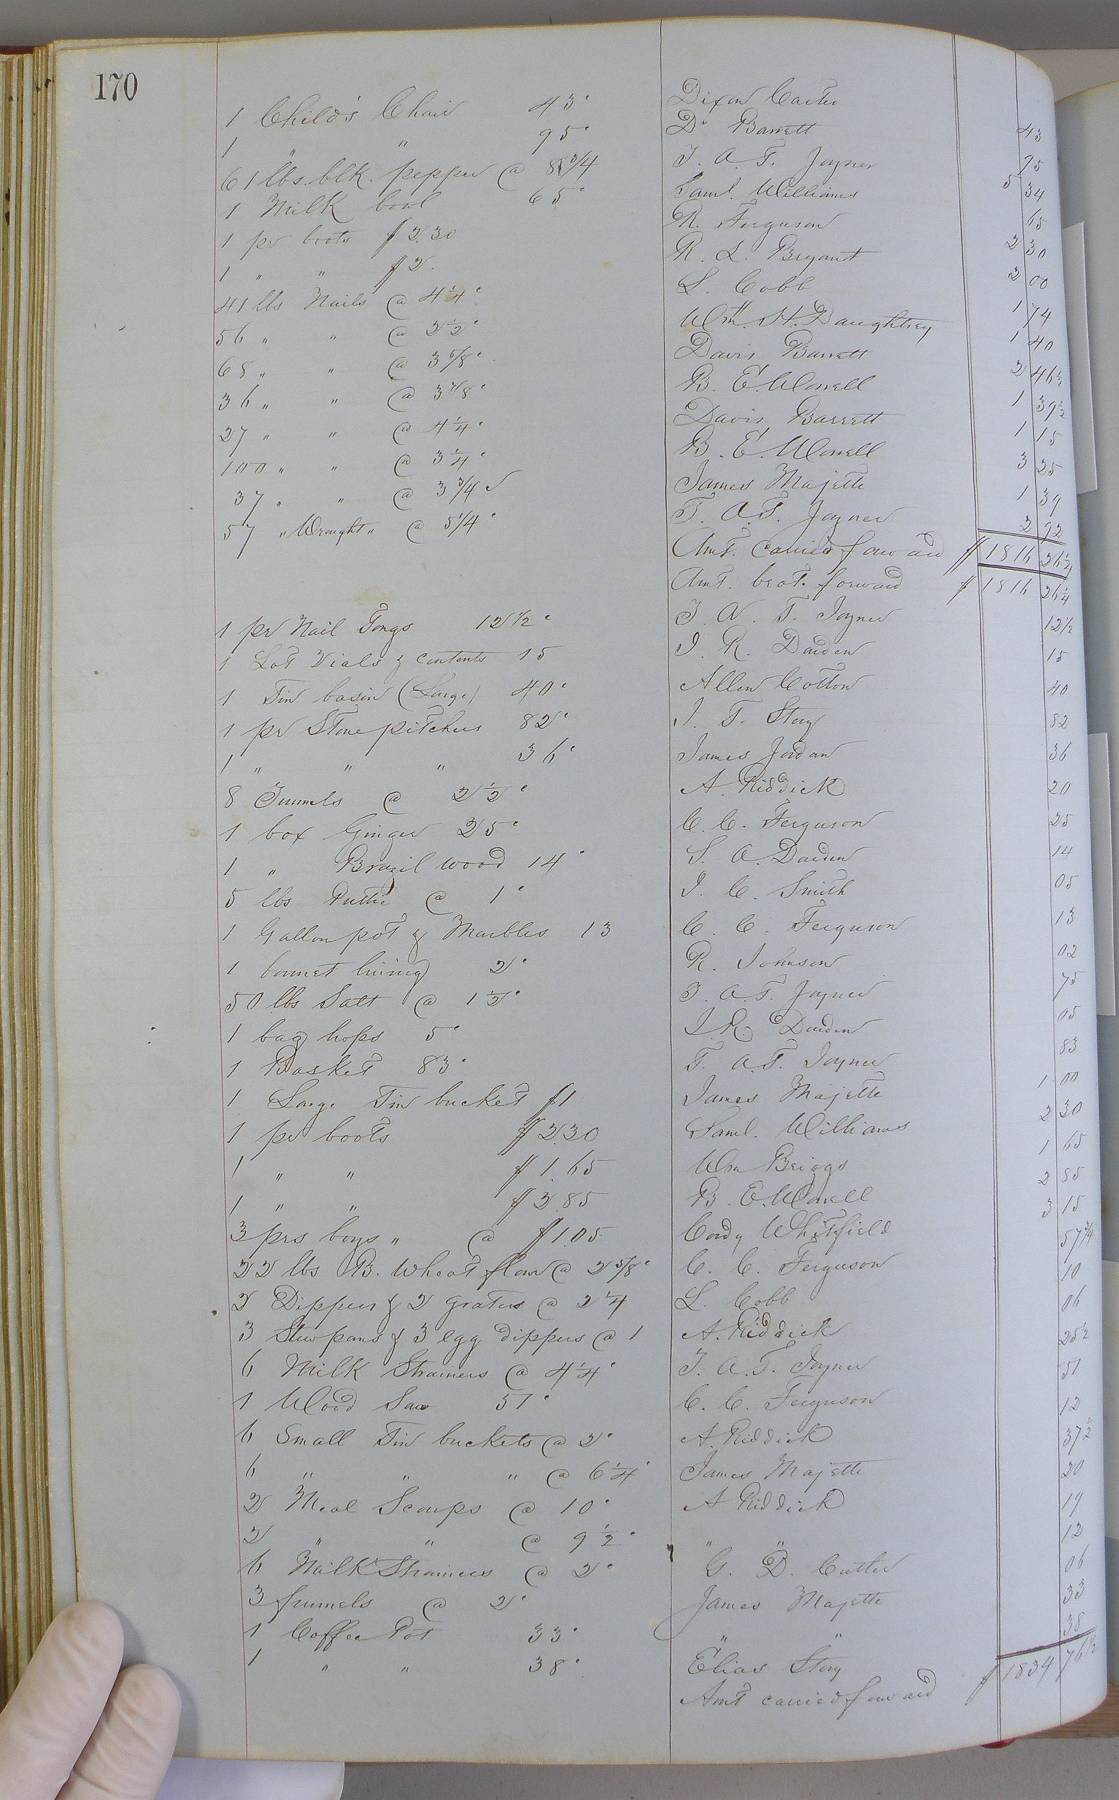 170
1 Child's Chair 43c Dixon Carter 43
1 " " 95c Do Barrett 95
61 lbs. blk. pepper @ 8 3/4 T. A. T. Joyner 5 34
1 Milk bowl 65c Saml. Williams 65
1 pr boots $2.30 R. Ferguson 2 30
1 " " $2. R. L. Bryant 2 00
41 lbs Nails @ 4 1/4c L. Cobb 1 74
56 " " @ 2 1/2c Wm. H. Daughtrey 1 40
68 " " @ 3 5/8c Davis Barrett 2 46 1/2
36 " " @ 3 7/8c B. E. Worrell 1 39 1/2
27 " " @ 4 1/4c Davis Barrett 1 15
100 " " @ 3 1/4c B. E. Worrell 3 25
37 " " @ 3 3/4 James Majette 1 39
57 " Wrought " @ 5 1/4c T. A. T. Joyner 2 92
Amt. carried forward $1816 26 1/4
Amt. brot. forward $1816 26 1/4
1 pr Nail Tongs 12 1/2c T. A. T. Joyner 12 1/2
1 Lot Vials & contents 15 J. R. Darden 15
1 Tin basin (Large) 40c Allen Cotton 40
1 pr Stone pitchers 82c J. T. Story 82
1 " " " 36c James Jordan 36
8 Funnels @ 2 1/2c A. Riddick 20
1 box Ginger 25c C. C. Ferguson 25
1 " Brazil wood 14c S. A. Darden 14
5 lbs Puttie @ 1c J. C. Smith 05
1 Gallon pot & Marbles 13 C. C. Ferguson 13
1 bonnet lining 2c R. Johnson 02
50 lbs Salt @ 1 1/2c T. A. T. Joyner 75
1 bag hops 5c J. R. Darden 05
1 Basket 83c T. A. T. Joyner 83
1 Large Tin bucket $1 James Majette 1 00
1 pr boots $2.30 Saml. Williams 2 30
1 " " $1.65 Wm Briggs 1 65
1 " " $2.85 B. E. Worrell 2 85
3 prs boys " @ $1.05 Cordy Whitfield 3 15
22 lbs B. Wheat flour @ 2 5/8c C. C. Ferguson 57 3/4
2 Dippers & 2 graters @ 2 1/4 L. Cobb 10
3 Stew pans & 3 egg dippers @ 1 A. Riddick 06
6 Milk Strainers @ 4 1/4c T. A. T. Joyner 25 1/2
1 Wood Saw 51c C. C. Ferguson 51
6 Small Tin buckets @ 2c A. Riddick 12
6 " " " @ 6 1/4c James Majette 37 1/2
2 Meal Scoups @ 10c A Riddick 20
2 " " @ 9 1/2c " " 19
6 Milk Strainers @ 2c G. D. Cutler 12
3 funnels @ 2c James Majette 06
1 Coffee Pot 33c " " 33
1 " " 38c Elias Story 38
Amt carried forward $1834 76 1/2